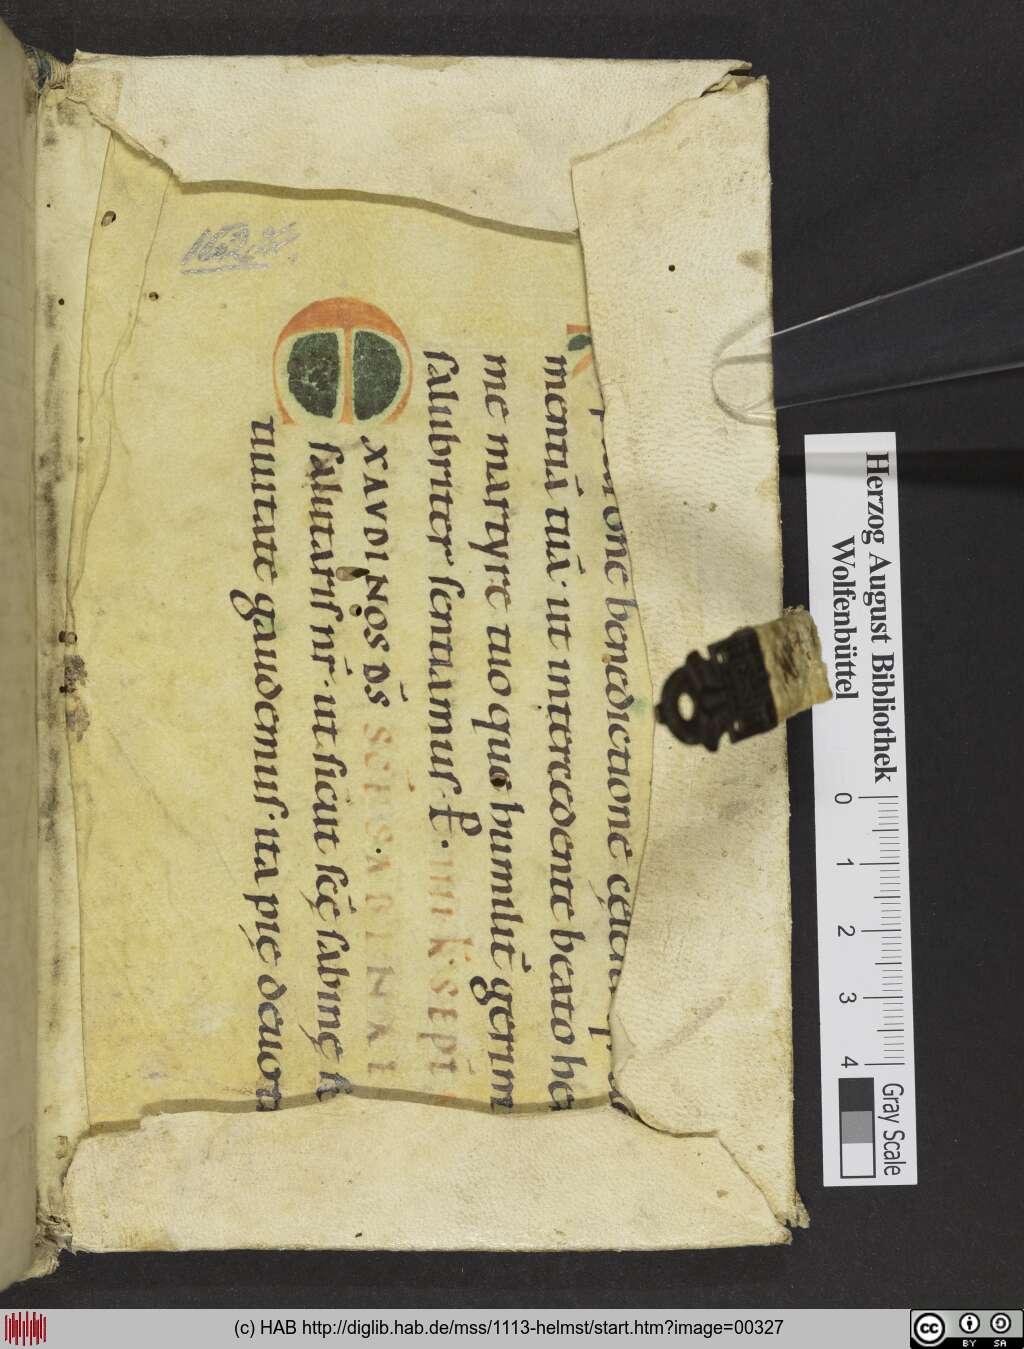 one benedictione
mentiā tuā· ut intercedente beato he
me martyre tuo quo humilit̄ gerim
ſalubriter ſentiamuſ· P IIII K SEPT
EXAVDI NOS D̄S SCE SABINAE
ſalutariſ nr̄· ut ſicut ſcę ſabinę
tiuitate gaudemuſ· ita pię deuoti
Herzog August Bibliothek
Wolfenbüttel
0 1 2 3 4
Gray Scale
(c) HAB http://diglib.hab.de/mss/1113-helmst/start.htm?image=00327
cc BY SA